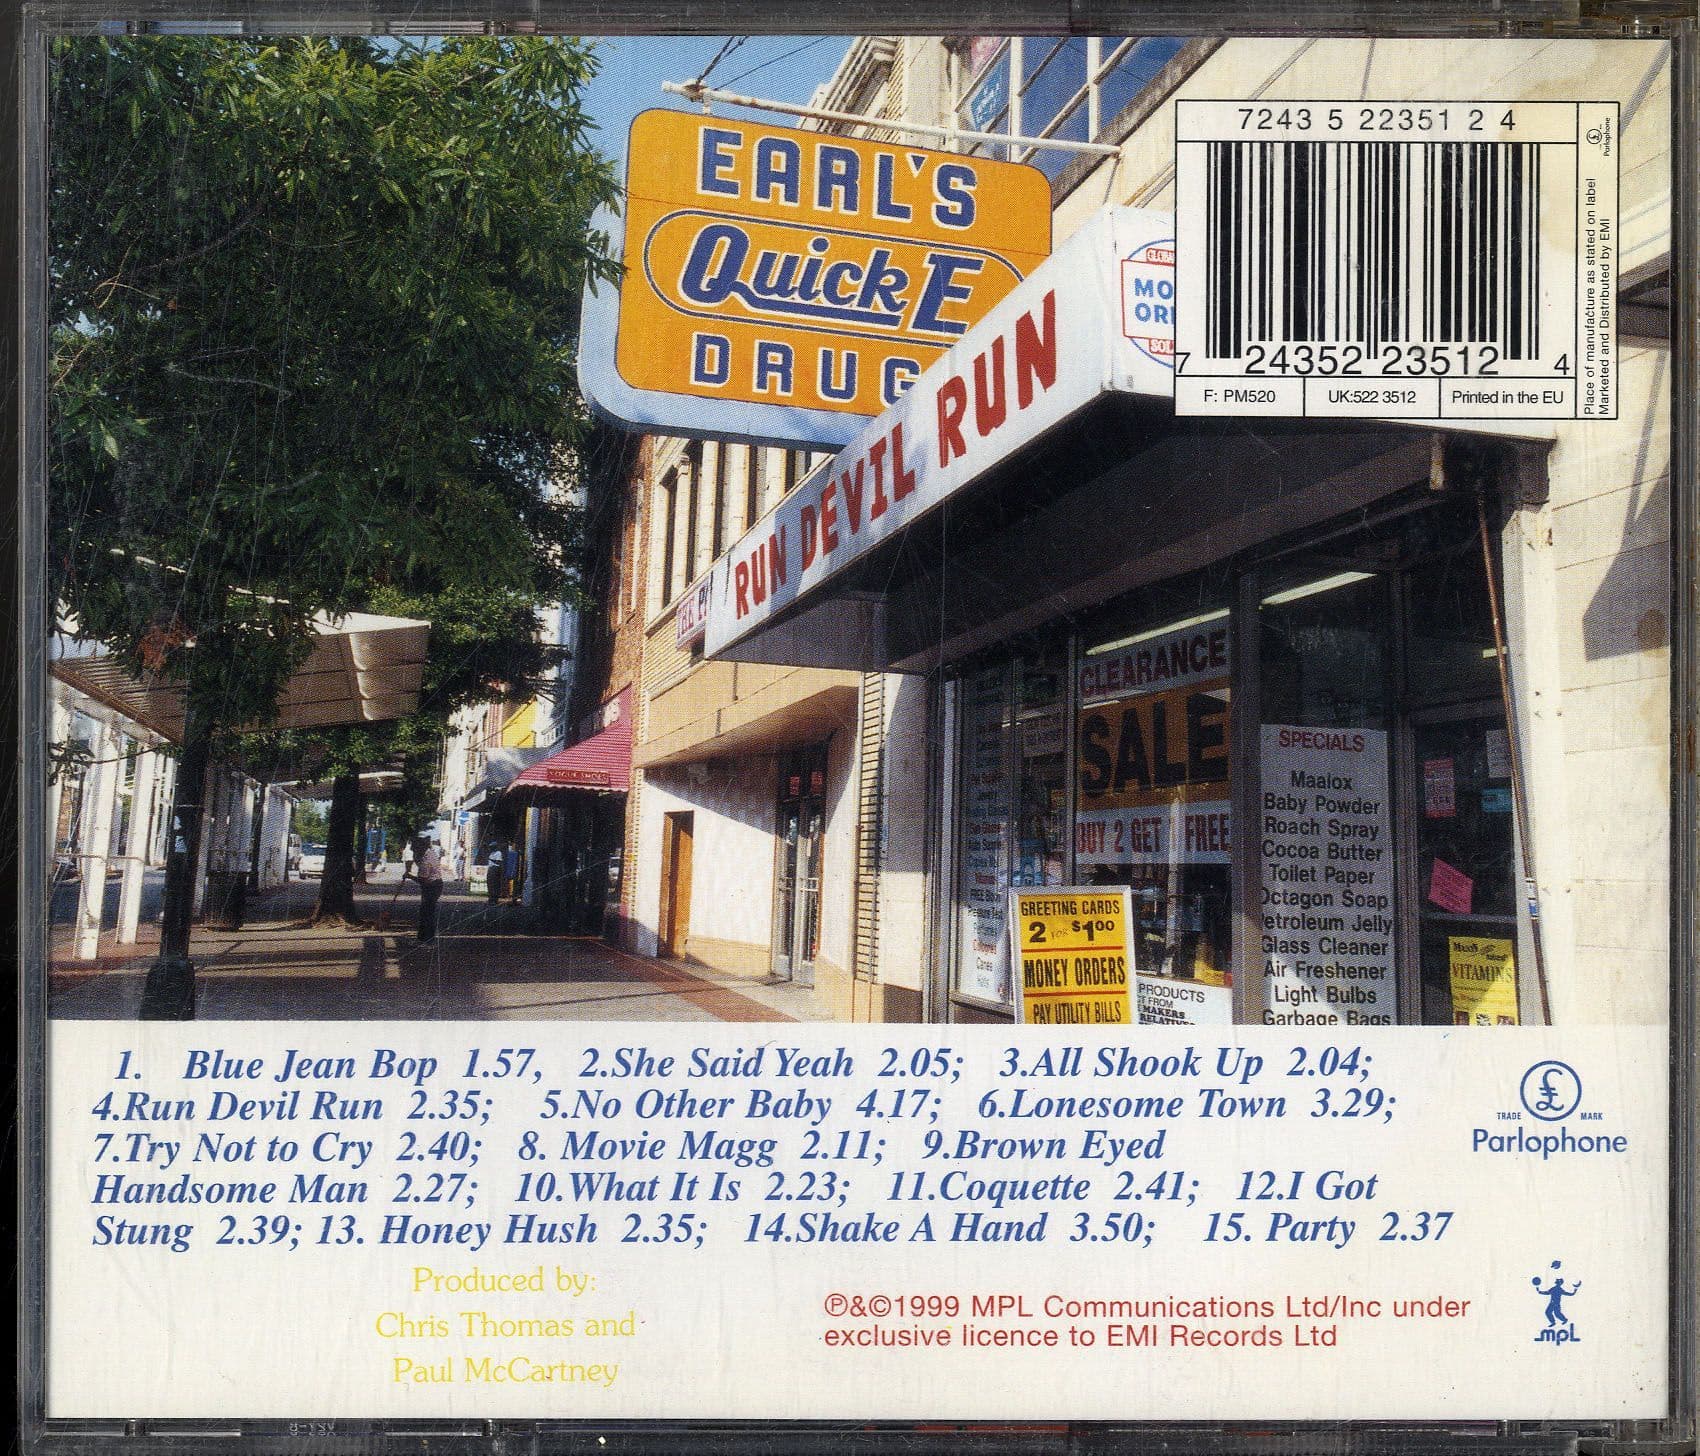 EARL'S
Quick E
DRUG
RUN DEVIL RUN
MO
ORI
7243 5 22351 2 4
7 24352 23512 4
F: PM520
UK:522 3512
Printed in the EU
Parlophone
Place of manufacture as stated on label
Marketed and Distributed by EMI
CLEARANCE
SALE
BUY 2 GET 1 FREE
GREETING CARDS
2 FOR $1.00
MONEY ORDERS
PAY UTILITY BILLS
PRODUCTS
FROM
MAKERS
SPECIALS
Maalox
Baby Powder
Roach Spray
Cocoa Butter
Toilet Paper
Octagon Soap
Petroleum Jelly
Glass Cleaner
Air Freshener
Light Bulbs
Garbage Bags
VITAMINS
1. Blue Jean Bop 1.57, 2.She Said Yeah 2.05; 3.All Shook Up 2.04;
4.Run Devil Run 2.35; 5.No Other Baby 4.17; 6.Lonesome Town 3.29;
7.Try Not to Cry 2.40; 8. Movie Magg 2.11; 9.Brown Eyed
Handsome Man 2.27; 10.What It Is 2.23; 11.Coquette 2.41; 12.I Got
Stung 2.39; 13. Honey Hush 2.35; 14.Shake A Hand 3.50; 15. Party 2.37
TRADE MARK
Parlophone
Produced by:
Chris Thomas and
Paul McCartney
℗&©1999 MPL Communications Ltd/Inc under
exclusive licence to EMI Records Ltd
mpL